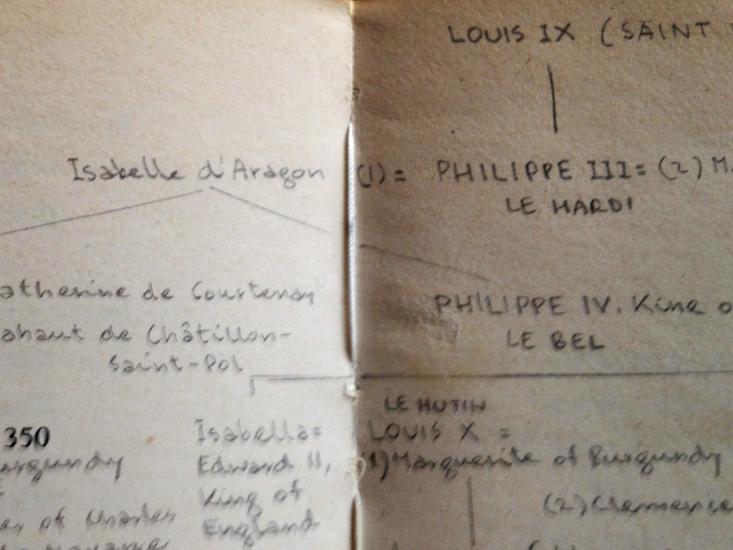 LOUIS IX (SAINT
Isabelle d'Aragon (1)= PHILIPPE III= (2) M.
LE HARDI
atherine de Courtenay
PHILIPPE IV. King o
LE BEL
ahaut de Châtillon-
Saint-Pol
LE HUTIN
350
Isabella=
LOUIS X =
urgundy
Edward II,
(1) Marguerite of Burgundy
King of
(2) Clemence
of Charles
England
Navarre